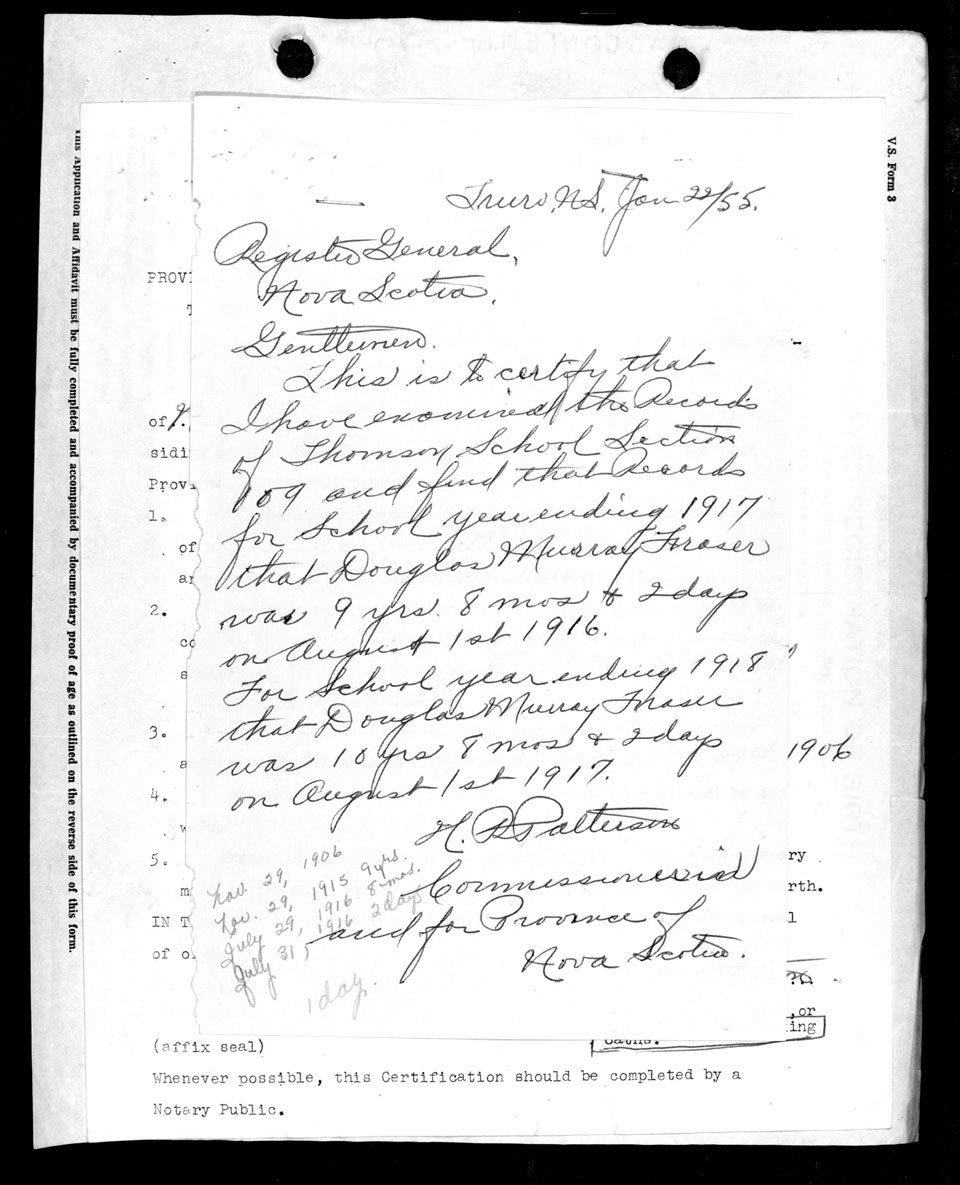 V.S. Form 3
This Application and Affidavit must be fully completed and accompanied by documentary proof of age as outlined on the reverse side of this form.
Truro, N.S. Jan 22/55.
Register General,
Nova Scotia.
Gentlemen.
This is to certify that
I have examined the Records
of Thomson School Section
109 and find that Records
for School year ending 1917
that Douglas Murray Fraser
was 9 yrs. 8 mos & 2 days
on August 1st 1916.
For School year ending 1918
that Douglas Murray Fraser
was 10 yrs 8 mos & 2 days
on August 1st 1917.
H. B Patterson
Commissioner in
and for Province of
Nova Scotia.
Nov. 29, 1906
Nov. 29, 1915 9 yrs.
July 29, 1916 8 mos.
July 31, 1916 2 days
1 day.
PROVI
of
sidi
Provi
1.
of
2.
3.
4.
5.
m
IN T
of o
1906
ry
rth.
l
,or
ing
oaths.
(affix seal)
Whenever possible, this Certification should be completed by a
Notary Public.